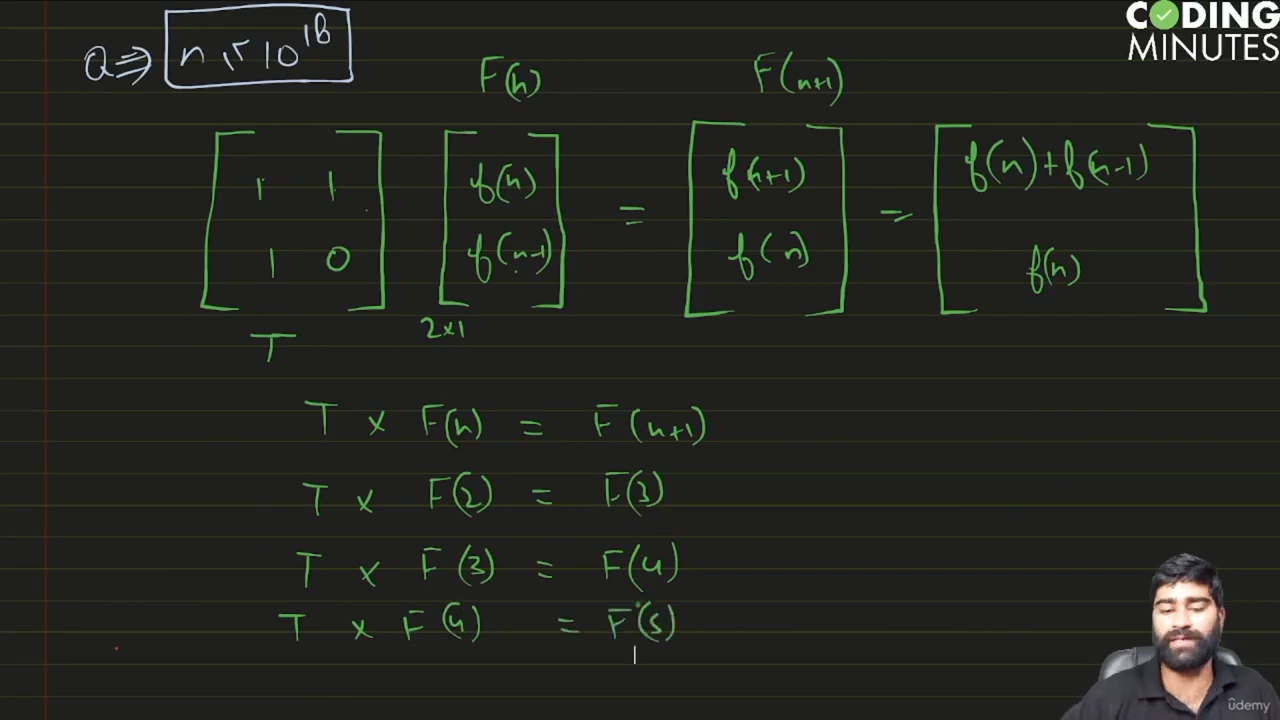 CODING
MINUTES
Q ⇒ n 10^18
F(n) F(n+1)
1 1 f(n) = f(n+1) = f(n)+f(n-1)
1 0 f(n-1) f(n) f(n)
T 2x1
T x F(n) = F(n+1)
T x F(2) = F(3)
T x F(3) = F(4)
T x F(4) = F(5)
udemy